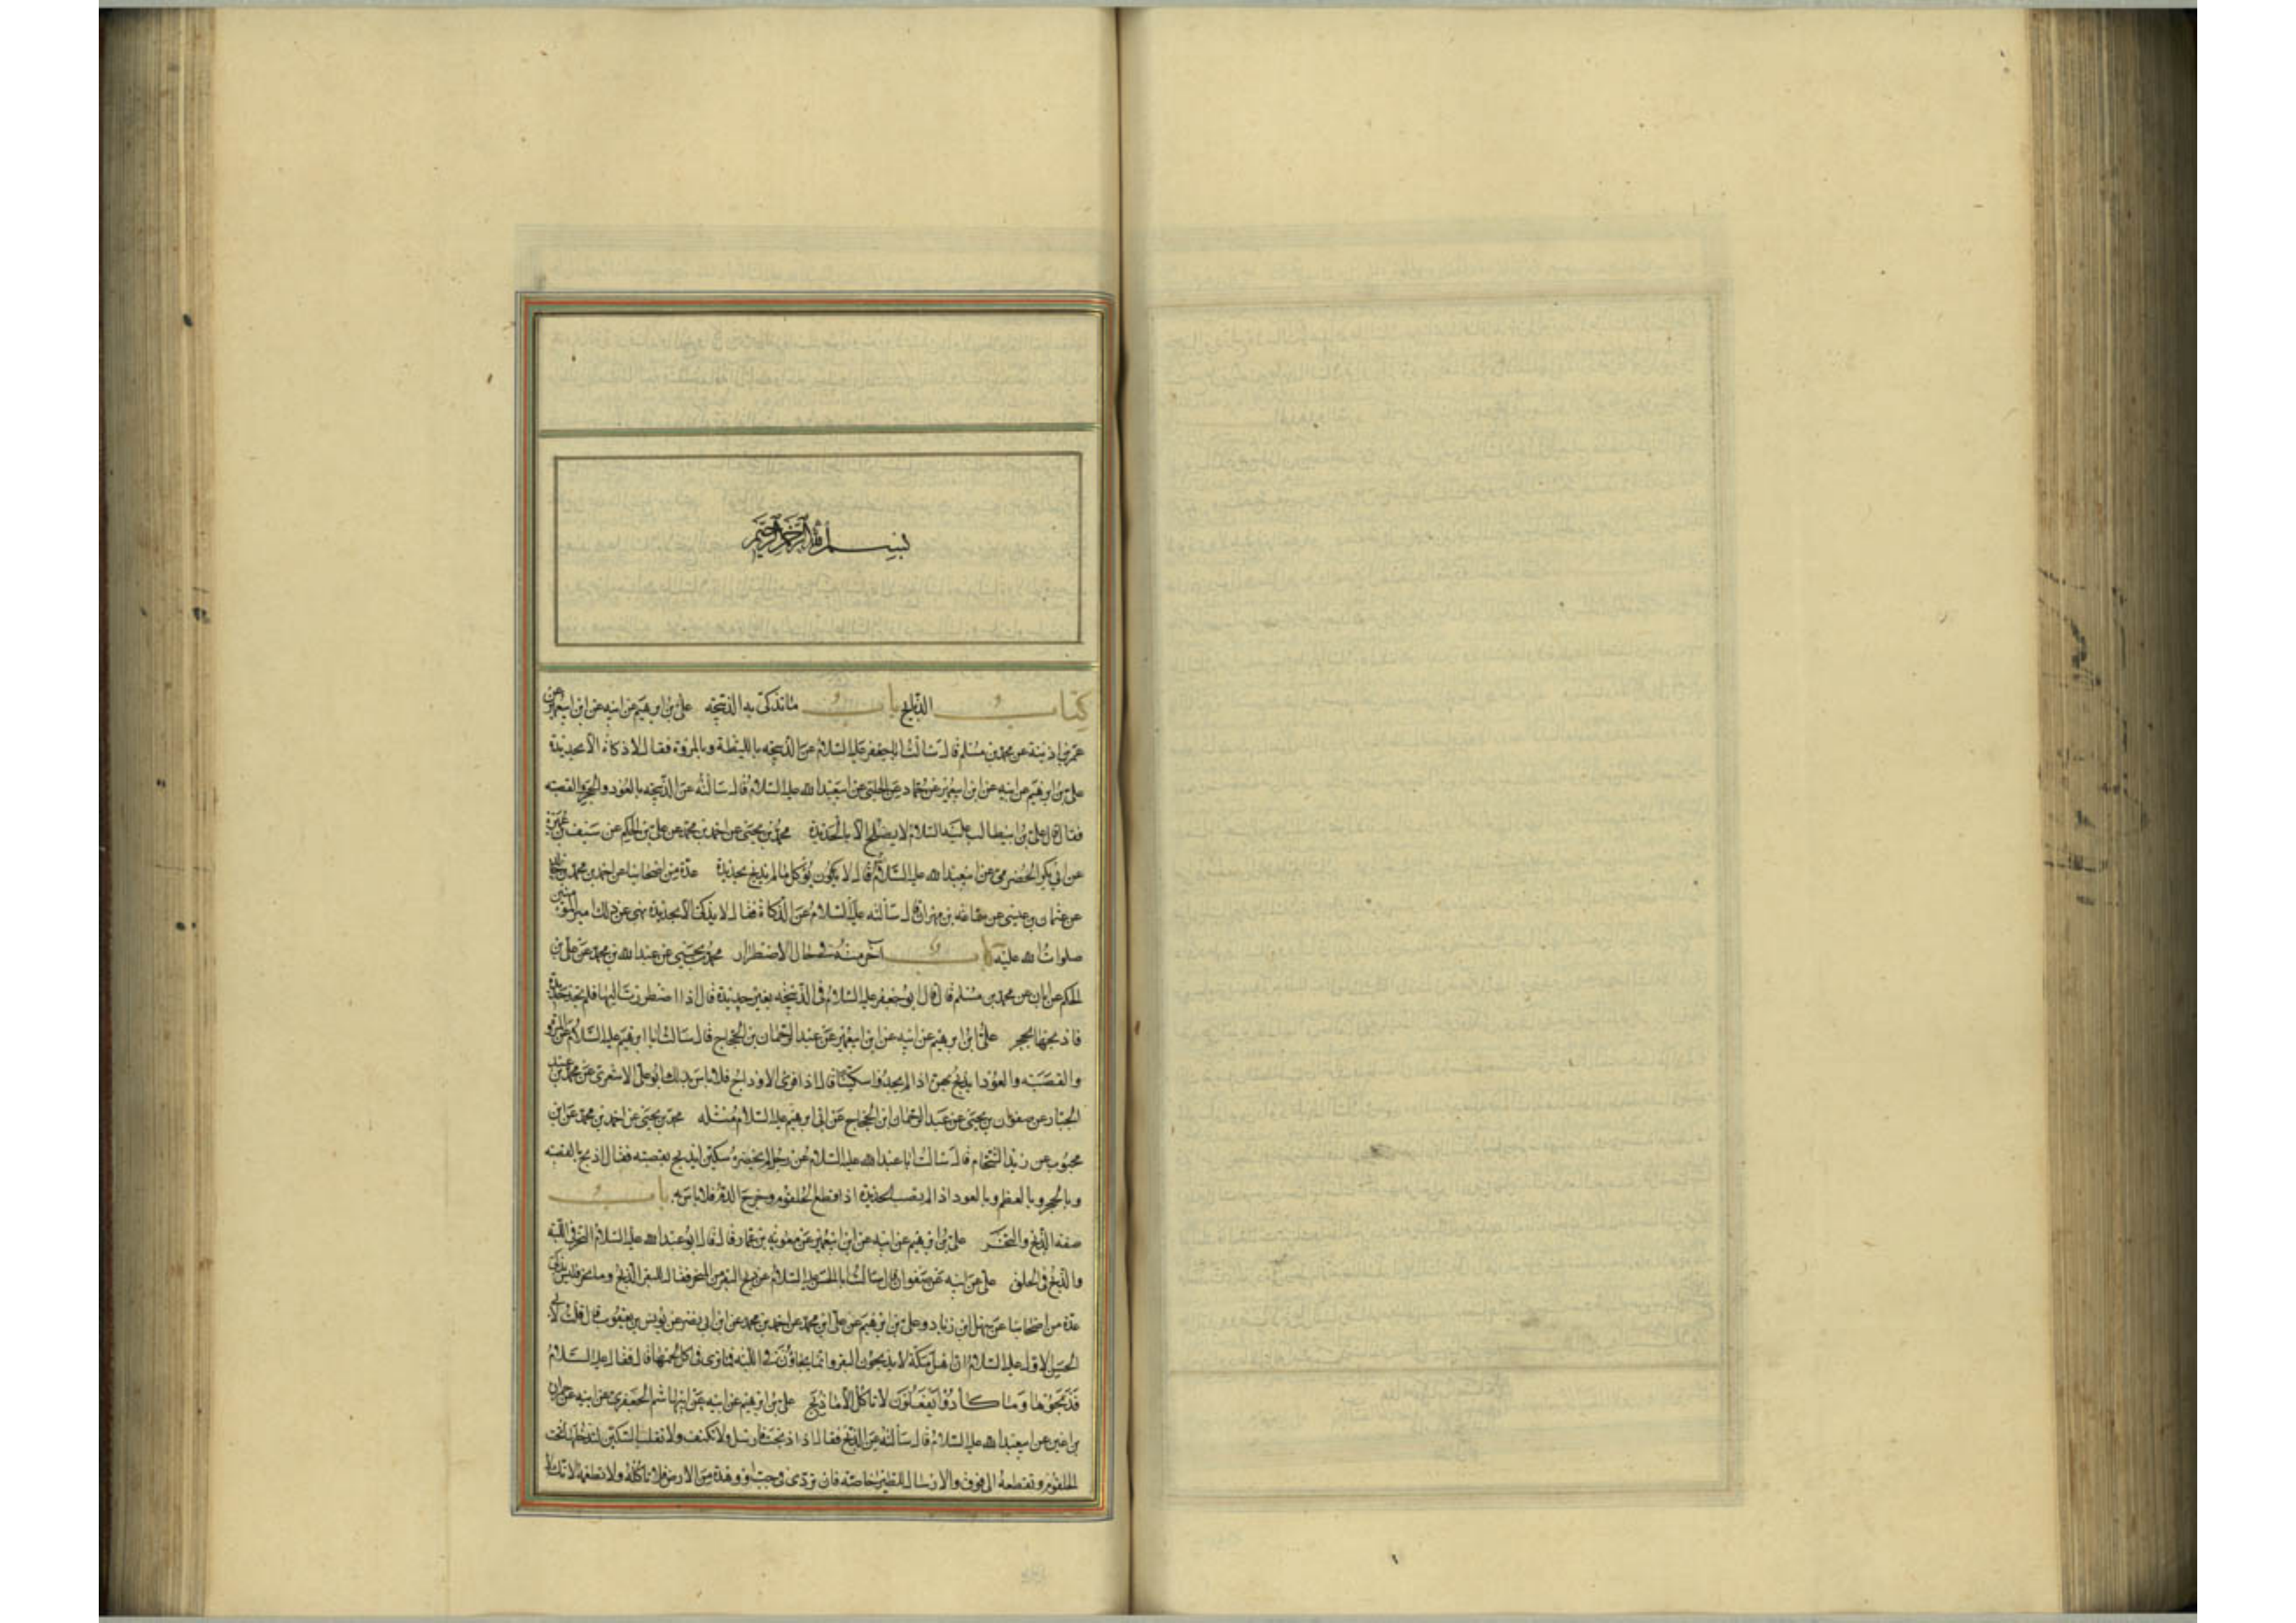 بسم الله الرحمن الرحيم
كتاب الذبايح باب ما تذكى به الذبيحه علي بن ابرهيم عن ابيه عن ابن ابيعمير عن
عمر بن اذينة عن محمد بن مسلم قال سالت اباجعفر عليه السلام عن الذبيحه بالليطة وبالمروة فقال لا ذكاة الا بحديدة
علي بن ابرهيم عن ابيه عن ابن ابيعمير عن حماد عن الحلبي عن ابيعبدالله عليه السلام قال سالته عن الذبيحه بالعود والحجر والقصبه
فقال قال علي بن ابيطالب عليه السلام لا يصلح الا بالحديدة محمد بن يحيى عن احمد بن محمد عن علي بن الحكم عن سيف بن عميرة
عن ابي بكر الحضرمي عن ابيعبدالله عليه السلام قال لا يؤكل ما لم يذبح بحديدة عدة من اصحابنا عن احمد بن محمد بن
عن عثمان بن عيسى عن سماعه بن مهران قال سالته عليه السلام عن الذكاة فقال لا يذكى الا بحديدة نهى عن ذلك امير المومنين
صلوات الله عليه باب آخر منه في حال الاضطرار محمد بن يحيى عن عبدالله بن محمد عن علي بن
الحكم عن ابان عن محمد بن مسلم قال قال ابوجعفر عليه السلام في الذبيحه بغير حديدة قال اذا اضطررت اليها فلم تجد حديدة
فاذبحها بحجر علي ابن ابرهيم عن ابيه عن ابن ابيعمير عن عبد الرحمان بن الحجاج قال سالت ابا ابرهيم عليه السلام عن المروة
والقصبه والعود ايذبح بهن اذا لم يجدوا سكينا قال اذا فرى الاوداج فلا باس بذلك ابو علي الاشعري عن محمد بن عبد
الجبار عن صفوان بن يحيى عن عبد الرحمان ابن الحجاج عن ابي ابرهيم عليه السلام مثله محمد بن يحيى عن احمد بن محمد عن ابن
محبوب عن زيد الشحام قال سالت ابا عبدالله عليه السلام عن رجل لم يحضره سكين ايذبح بقصبه فقال اذبح بالقصبه
وبالحجر وبالعظم وبالعود اذا لم تصب الحديدة اذا قطع الحلقوم وخرج الدم فلا باس به باب
صفه الذبح والنحر علي بن ابرهيم عن ابيه عن ابن ابيعمير عن معويه بن عمار قال قال ابو عبدالله عليه السلام النحر في اللبه
والذبح في الحلق علي عن ابيه عن صفوان قال سالت ابا الحسن عليه السلام عن ذبح البقر من المنحر فقال للبقر الذبح وما نحر فليس بذكي
عدة من اصحابنا عن سهل ابن زياد وعلي بن ابرهيم عن علي ابن محمد عن احمد بن محمد عن ابن ابي نصر عن يونس بن يعقوب قال قلت لابي
الحسن الاول عليه السلام ان اهل مكة لا يذبحون البقر وانما ينحرون في اللبه فما ترى في اكل لحمها قال فقال عليه السلام
فذبحوها وما كادوا يفعلون لا تاكل الا ما ذبح علي بن ابرهيم عن ابيه عن ابيهاشم الجعفري عن ابيه عن حمران
بن اعين عن ابيعبدالله عليه السلام قال سالته عن الذبح فقال اذا ذبحت فارسل ولا تكتف ولا تقلب السكين لتدخلها تحت
الحلقوم وتقطعه الى فوق والارسال للطير خاصه فان تردى في جب او وهدة من الارض فلا تاكله ولا تطعمه فانك لا